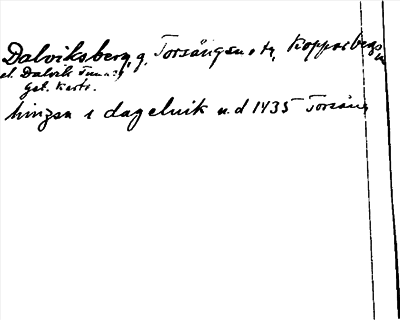 Dalviksberg, g. Torsångs sn o tg, Kopparbergs
el. Dalvik Tuna
Gst. Karta.
hingzsa i dagelwik u. d 1435 Torsång